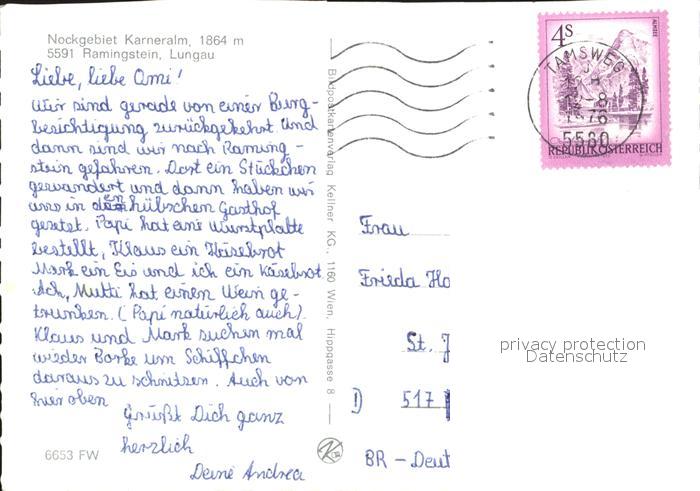 Nockgebiet Karneralm, 1864 m
5591 Ramingstein, Lungau
Liebe, liebe Omi!
Wir sind gerade von einer Burg-
besichtigung zurückgekehrt. Und
dann sind wir nach Raming-
stein gefahren. Dort ein Stückchen
gewandert und dann haben wir
uns in hübschen Gasthof
gesetzt. Papi hat eine Wurstplatte
bestellt, Klaus ein Käsebrot
Mark ein Eis und ich ein Käsebrot
Ach, Mutti hat einen Wein ge-
trunken. (Papi natürlich auch).
Klaus und Mark suchen mal
wieder Borke um Schiffchen
daraus zu schnitzen. Auch von
hier oben
Grüßt Dich ganz
herzlich
Deine Andrea
6653 FW
Bildpostkartenverlag Kellner KG., 1160 Wien, Hippgasse 8
4S
ALMSEE
TAMSWEG
5580
REPUBLIK ÖSTERREICH
Frau
Frieda Ho
St. J
D) 517
BR - Deut
privacy protection
Datenschutz